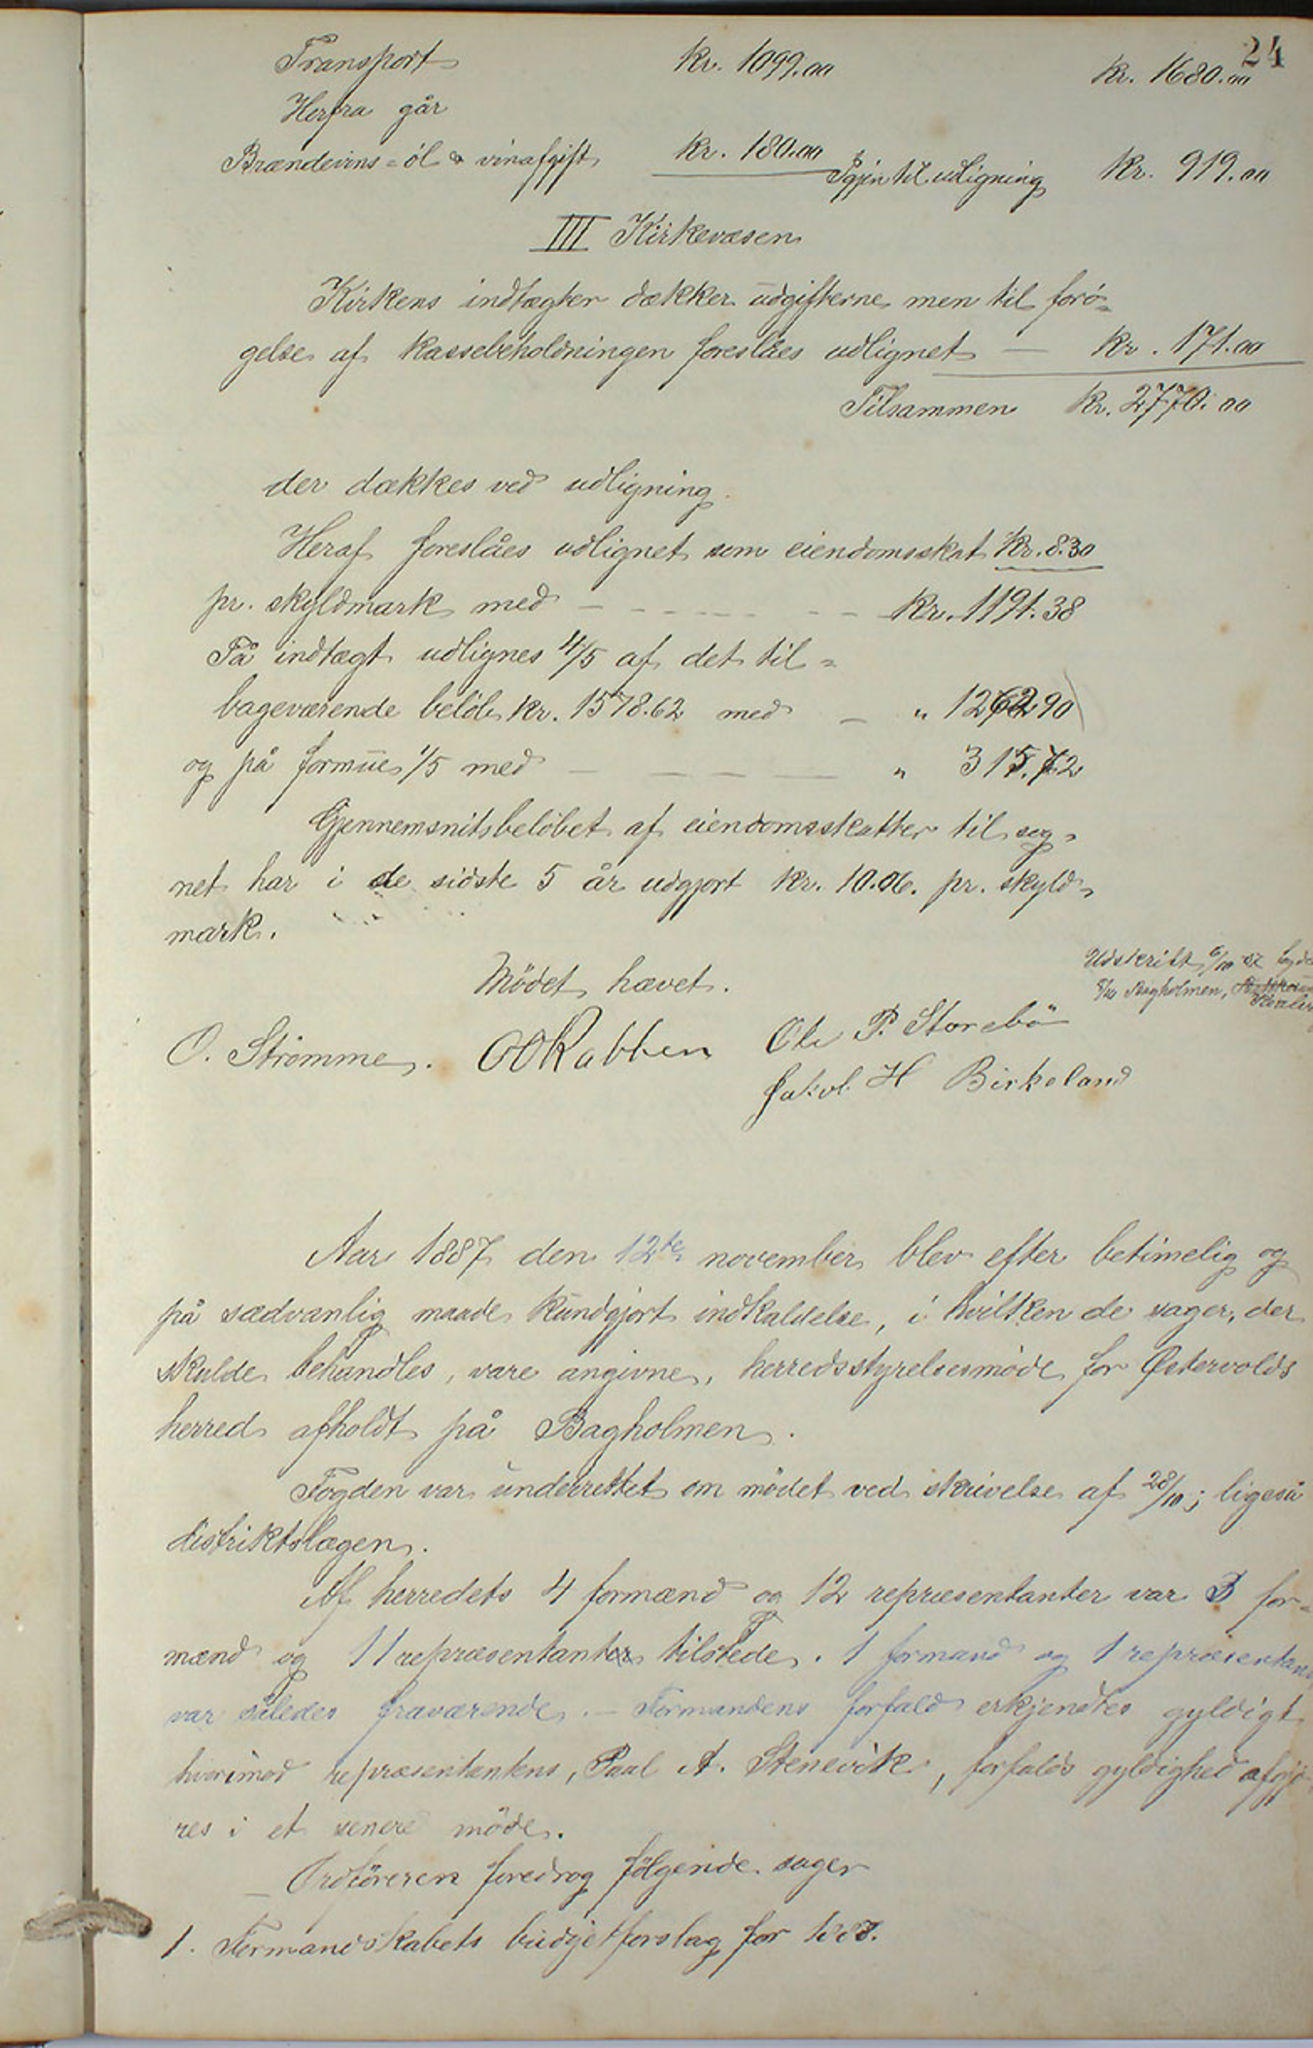 24
Transport kr. 1099.00 kr. 1680.00
Herfra går
Brændevins- öl & vinafgift kr. 180.00 Igjen til udligning kr. 919.00
III Kirkevæsen
Kirkens indtægter dækker udgifterne men til forö-
gelse af kassebeholdningen foreslåes udlignet — kr. 171.00
Tilsammen kr. 2770.00
der dækkes ved udligning.
Heraf foreslåes udlignet som eiendomsskat kr. 8.30
pr. skyldmark med — kr. 1191.38
På indtægt udlignes 4/5 af det til-
bageværende belöb kr. 1578.62 med — " 1262.90
og på formue 1/5 med — " 315.72
Gjennemsnitsbelöbet af eiendomsskatter til sog-
net har i de sidste 5 år udgjort kr. 10.06. pr. skyld-
mark.
Udskrift 6/10
Mödet hævet.
8/10 Bagholmen,
O. Strömme. OO Rabben Ole P. Storebö
Jakob H Birkeland
Aar 1887 den 12te november blev efter betimelig og
på sædvanlig maade kundgjort indkaldelse, i hvilken de sager, der
skulde behandles, vare angivne, herredsstyrelsesmöde for Østervolds
herred afholdt på Bagholmen.
Fogden var underrettet om mödet ved skrivelse af 28/10; ligeså
distriktslægen.
Af herredets 4 formænd og 12 repræsentanter var 3 for-
mænd og 11 repræsentanter tilstede. 1 formand og 1 repræsentant
var således fraværende. — Formandens forfald erkjendtes gyldigt
hvorimod repræsentantens, Paul A. Stenevik, forfalds gyldighed afgjö-
res i et senere möde.
Ordföreren foredrog fölgende sager
1. Formandskabets budgetforslag for 1888.